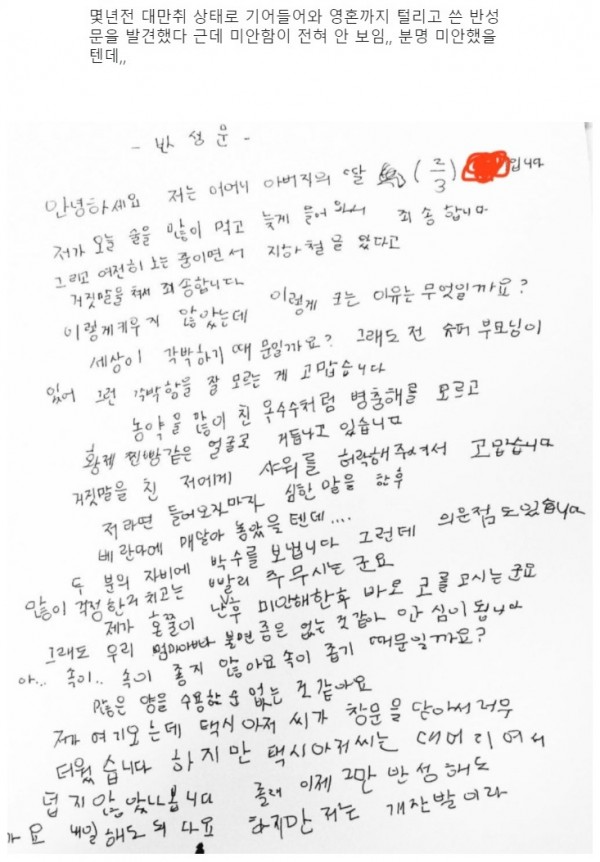 몇년전 대만취 상태로 기어들어와 영혼까지 털리고 쓴 반성
문을 발견했다 근데 미안함이 전혀 안 보임,, 분명 미안했을
텐데,,
- 반 성 문 -
안녕하세요 저는 어머니 아버지의 딸 (2/3) 입니다
저가 오늘 술을 많이 먹고 늦게 들어와서 죄송합니다
그리고 여전히 노는 중이면서 지하철을 왔다고
거짓말을 쳐서 죄송합니다
이렇게 키우지 않았는데 이렇게 크는 이유는 무엇일까요?
세상이 각박하기 때문일까요? 그래도 전 슈퍼 부모님이
있어 그런 각박함을 잘 모르는 게 고맙습니다
농약을 많이 친 옥수수처럼 병충해를 모르고
황제 찐빵같은 얼굴로 거듭나고 있습니다
거짓말을 친 저에게 샤워를 허락해주셔서 고맙습니다
저라면 들어오자마자 심한 말을 한후
베란다에 매달아 놓았을 텐데....
두 분의 자비에 박수를 보냅니다 그런데 의문점도 있습니다
많이 걱정한거 치고는 빨리 주무시는군요
제가 혼쭐이 난 후 미안해한후 바로 코를 고시는군요
그래도 우리 엄마아빠 불면증은 없는 것 같아 안심이 됩니다
아... 속이.. 속이 좋지 않아요 속이 좁기 때문일까요?
많은 양을 수용할 순 없는 것 같아요
제가 여기오는데 택시아저씨가 창문을 닫아서 너무
더웠습니다 하지만 택시아저씨는 대머리여서
덥지 않았나봅니다 몰래 이제 그만 반성해도
가요 내일 해도 되다요 하지만 저는 개잔발이라